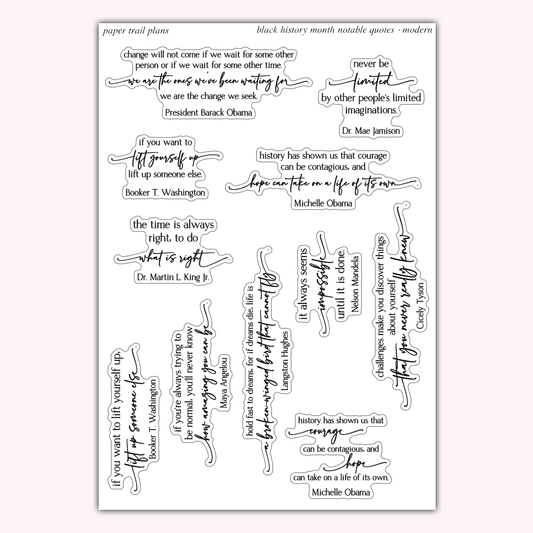 paper trail plans
black history month notable quotes - modern
change will not come if we wait for some other
person or if we wait for some other time.
we are the ones we've been waiting for
we are the change we seek.
President Barack Obama
never be
limited
by other people's limited
imaginations.
Dr. Mae Jamison
if you want to
lift yourself up
lift up someone else.
Booker T. Washington
history has shown us that courage
can be contagious, and
hope can take on a life of its own
Michelle Obama
the time is always
right, to do
what is right
Dr. Martin L. King Jr.
it always seems
impossible
until it is done
Nelson Mandela
challenges make you discover things
about yourself
that you never really knew
Cicely Tyson
hold fast to dreams, for if dreams die, life is
a broken-winged bird that cannot fly
Langston Hughes
if you're always trying to
be normal, you'll never know
how amazing you can be
Maya Angelou
if you want to lift yourself up,
lift up someone else
Booker T. Washington
history has shown us that
courage
can be contagious, and
hope
can take on a life of its own.
Michelle Obama